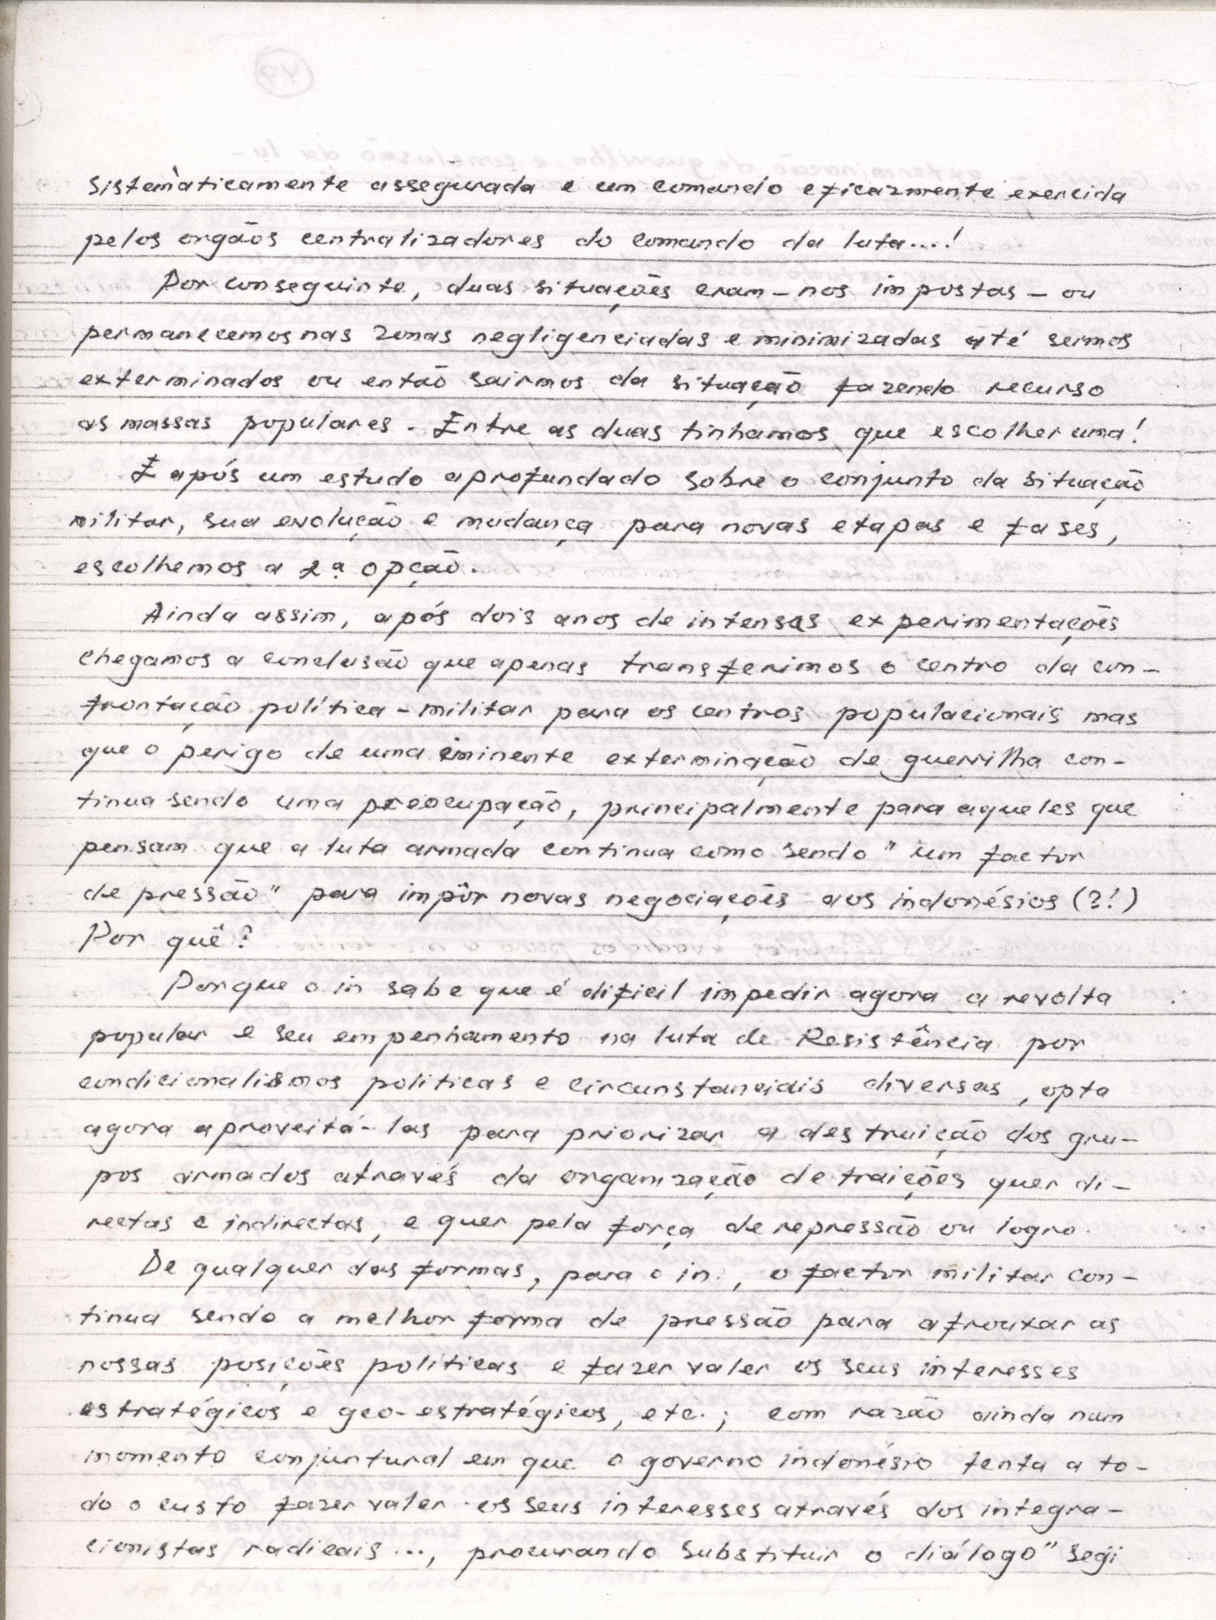 sistemàticamente assegurada e um comando eficazmente exercida
pelos orgãos centralizadores do comando da luta....!
Por conseguinte, duas situações eram-nos impostas - ou
permanecemos nas zonas negligenciadas e minimizadas até sermos
exterminados ou então sairmos da situação fazendo recurso
as massas populares. Entre as duas tinhamos que escolher uma!
E após um estudo aprofundado sobre o conjunto da situação
militar, sua evolução e mudança para novas etapas e fases,
escolhemos a 2ª opção.
Ainda assim, após dois anos de intensas experimentações
chegamos a conclusão que apenas transferimos o centro da con-
frontação política-militar para os centros populacionais mas
que o perigo de uma eminente exterminação de guerrilha con-
tinua sendo uma preocupação, principalmente para aqueles que
pensam que a luta armada continua como sendo "um factor
de pressão" para impôr novas negociações aos indonésios (?!)
Por quê?
Porque o in sabe que é dificil impedir agora a revolta
popular e seu empenhamento na luta de Resistência por
condicionalismos politicas e circunstanciais diversas, opta
agora aproveitá-las para priorizar a destruição dos gru-
pos armados através da organização de traições quer di-
rectas e indirectas, e quer pela força de repressão ou logro.
De qualquer das formas, para o in., o factor militar con-
tinua sendo a melhor forma de pressão para afrouxar as
nossas posições políticas e fazer valer os seus interesses
estratégicos e geo-estratégicos, etc.; com razão ainda num
momento conjuntural em que o governo indonésio tenta a to-
do o custo fazer valer os seus interesses através dos integra-
cionistas radicais..., procurando substituir o diálogo" segi